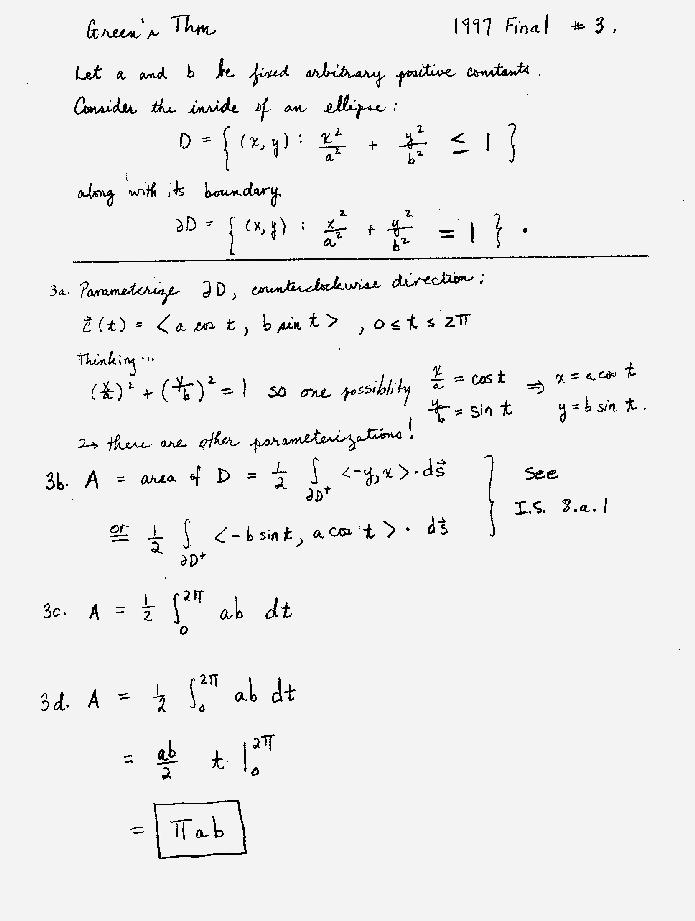 Green's Thm 1997 Final #3.
Let a and b be fixed arbitrary positive constants.
Consider the inside of an ellipse:
D = { (x, y) : x²/a² + y²/b² ≤ 1 }
along with its boundary
∂D = { (x, y) : x²/a² + y²/b² = 1 } .
3a. Parameterize ∂D, counterclockwise direction:
c⃗(t) = < a cos t, b sin t > , 0 ≤ t ≤ 2π
Thinking...
(x/a)² + (y/b)² = 1 so one possiblity x/a = cos t ⇒ x = a cos t
y/b = sin t y = b sin t.
↳ there are other parameterizations!
3b. A = area of D = 1/2 ∫_∂D⁺ <-y, x> · ds⃗ } See
I.S. 8.a.1
or 1/2 ∫_∂D⁺ <-b sin t, a cos t> · ds⃗
3c. A = 1/2 ∫₀^2π ab dt
3d. A = 1/2 ∫₀^2π ab dt
= ab/2 t |₀^2π
= πab